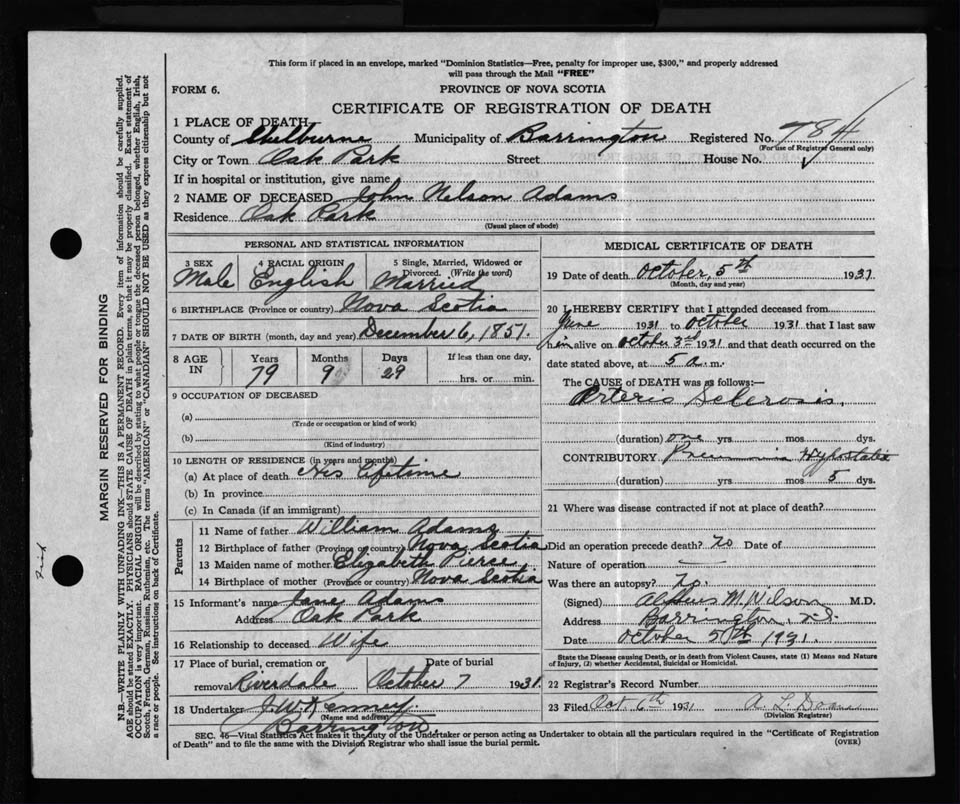 This form if placed in an envelope, marked "Dominion Statistics—Free, penalty for improper use, $300," and properly addressed
will pass through the Mail "FREE"
FORM 6.
PROVINCE OF NOVA SCOTIA
CERTIFICATE OF REGISTRATION OF DEATH
1 PLACE OF DEATH
County of Shelburne Municipality of Barrington Registered No. 784
(For use of Registrar General only)
City or Town Oak Park Street House No.
If in hospital or institution, give name
2 NAME OF DECEASED John Nelson Adams
Residence Oak Park
(Usual place of abode)
PERSONAL AND STATISTICAL INFORMATION
3 SEX 4 RACIAL ORIGIN 5 Single, Married, Widowed or
Divorced. (Write the word)
Male English Married
6 BIRTHPLACE (Province or country) Nova Scotia
7 DATE OF BIRTH (month, day and year) December 6, 1851
8 AGE IN Years Months Days If less than one day,
79 9 29 hrs. or min.
9 OCCUPATION OF DECEASED
(a)
(Trade or occupation or kind of work)
(b)
(Kind of industry)
10 LENGTH OF RESIDENCE (in years and months)
(a) At place of death His lifetime
(b) In province
(c) In Canada (if an immigrant)
Parents
11 Name of father William Adams
12 Birthplace of father (Province or country) Nova Scotia
13 Maiden name of mother Elizabeth Pierce
14 Birthplace of mother (Province or country) Nova Scotia
15 Informant's name Jane Adams
Address Oak Park
16 Relationship to deceased Wife
17 Place of burial, cremation or Date of burial
removal Riverdale October 7 1931
18 Undertaker J. W. Kenney
(Name and address)
Barrington
MEDICAL CERTIFICATE OF DEATH
19 Date of death October, 5th 1931
(Month, day and year)
20 I HEREBY CERTIFY that I attended deceased from
June 1931 to October 1931 that I last saw
him alive on October 3rd 1931 and that death occurred on the
date stated above, at 5 a. m.
The CAUSE of DEATH was as follows:—
Arterio Sclerosis.
(duration) one yrs. mos. dys.
CONTRIBUTORY Pneumonia Hypostatic
(duration) yrs. mos. 5 dys.
21 Where was disease contracted if not at place of death?
Did an operation precede death? No Date of
Nature of operation —
Was there an autopsy? No.
(Signed) M. Wilson M.D.
Address Barrington, N.S.
Date October 5th 1931
State the Disease causing Death, or in death from Violent Causes, state (1) Means and Nature
of Injury, (2) whether Accidental, Suicidal or Homicidal.
22 Registrar's Record Number
23 Filed Oct 6th 1931 A. L. Doane
(Division Registrar)
SEC. 46—Vital Statistics Act makes it the duty of the Undertaker or person acting as Undertaker to obtain all the particulars required in the "Certificate of Registration
of Death" and to file the same with the Division Registrar who shall issue the burial permit.
(OVER)
MARGIN RESERVED FOR BINDING
N.B.—WRITE PLAINLY WITH UNFADING INK—THIS IS A PERMANENT RECORD. Every item of information should be carefully supplied.
AGE should be stated EXACTLY. PHYSICIANS should STATE CAUSE OF DEATH in plain terms, so that it may be properly classified. Exact statement of
OCCUPATION is very important. RACIAL ORIGIN will be described by stating to what people or tongue the deceased person belonged, whether English, Irish,
Scotch, French, German, Russian, Ruthenian, etc. The terms "AMERICAN" or "CANADIAN" SHOULD NOT BE USED as they express citizenship but not
a race or people. See instructions on back of Certificate.